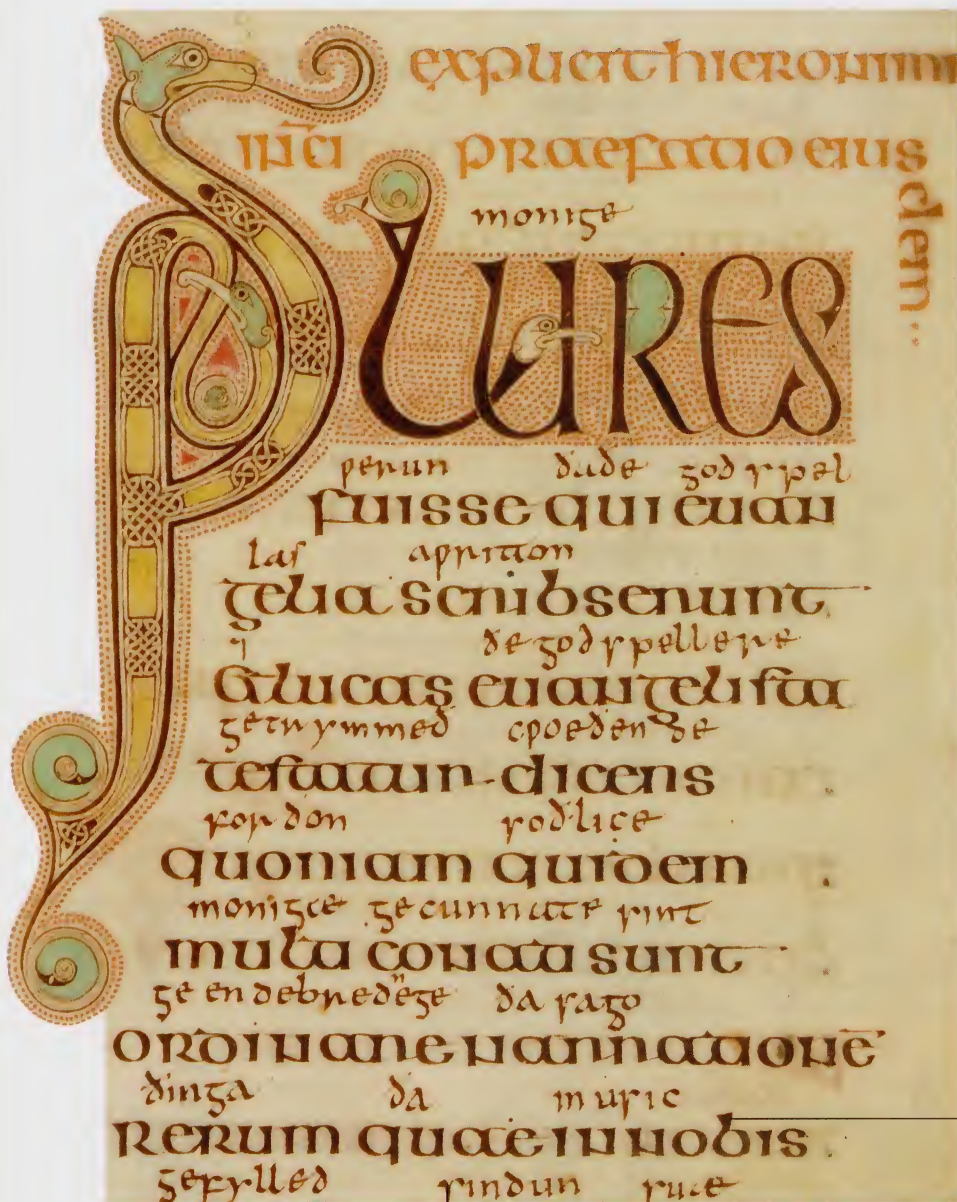 explicit hieronimi
inci praefatio eius
dem
monige
PLURES
ƿerun ðaðe godspel
fuisse qui euan
las aƿritton
gelia scribserunt
⁊ ðe godspellere
& lucas euangelista
getrymmed cƿoeðende
testatur dicens
forðon soðlice
quoniam quidem
monigæ gecunnate sint
multi conati sunt
ge endebrednege ða sago
ordinare narrationē
ðinga ða in usic
rerum quae in nobis
gefylled sindun